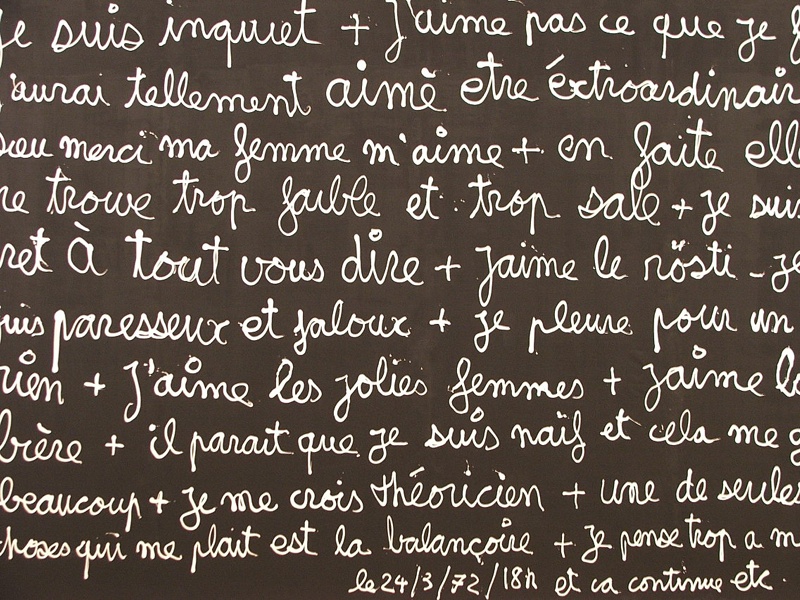 je suis inquiet + j'aime pas ce que je f
j'aurai tellement aimé etre éxtroardinair
dieu merci ma femme m'aime + en faite elle
me trouve trop faible et trop sale + je suis
pret à tout vous dire + j'aime le rösti - je
suis paresseux et jaloux + je pleure pour un
rien + j'aime les jolies femmes + j'aime la
bière + il parait que je suis naïf et cela me g
beaucoup + je me crois théoricien + une de seules
choses qui me plait est la balançoire + je pense trop a m
le 24/3/72/18h et ca continue etc.